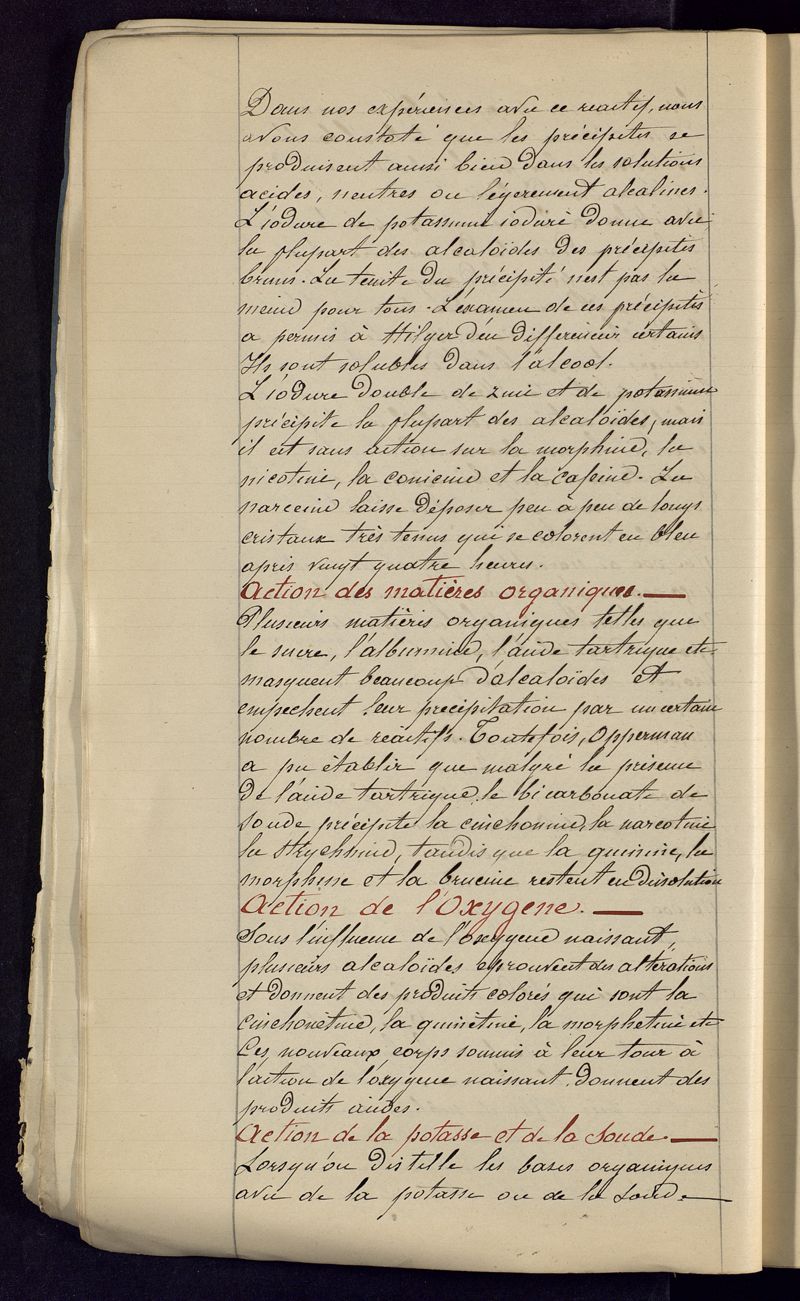 Dans nos expériences avec ce reactif, nous
avons constaté que les précipités se
produisent aussi bien dans les solutions
acides, neutres ou légerement alcalines.
L'iodure de potassium ioduré donne avec
la plupart des alcaloïdes des précipités
bruns. La teinte du précipité n'est pas la
meme pour tous. L'examen de ces précipités
a permis à Hilger d'en differencier certains
Ils sont solubles dans l'alcool.
L'iodure double de zinc et de potassium
précipite la plupart des alcaloïdes, mais
il est sans action sur la morphine, la
nicotine, la conicine et la caféine. La
narceine laisse déposer peu à peu de longs
cristaux très tenus qui se colorent en bleu
apris vingt quatre heures.
Action des matières organiques.—
Plusieurs matières organiques telles que
le sucre, l'albumine, l'acide tartrique etc
masquent beaucoup d'alcaloïdes et
empechent leur precipitation par un certain
nombre de réactifs. Toutefois, Opperman
a pu établir que malgré la présence
de l'acide tartrique, le bicarbonate de
soude précipite la cinchonine, la narcotine
la strychnine, tandis que la quinine, la
morphine et la brucine restent en dissolution
Action de l'Oxygene.—
Sous l'influence de l'oxygene naissant,
plusieurs alcaloïdes eprouvent des altérations
et donnent des produits colorés qui sont la
cinchonétine, la quinétine, la morphétine etc
Ces nouveaux corps soumis à leur tour à
l'action de l'oxygene naissant donnent des
produits acides.
Action de la potasse et de la Soude.—
Lorsqu'on distelle les bases organiques
avec de la potasse ou de la soude